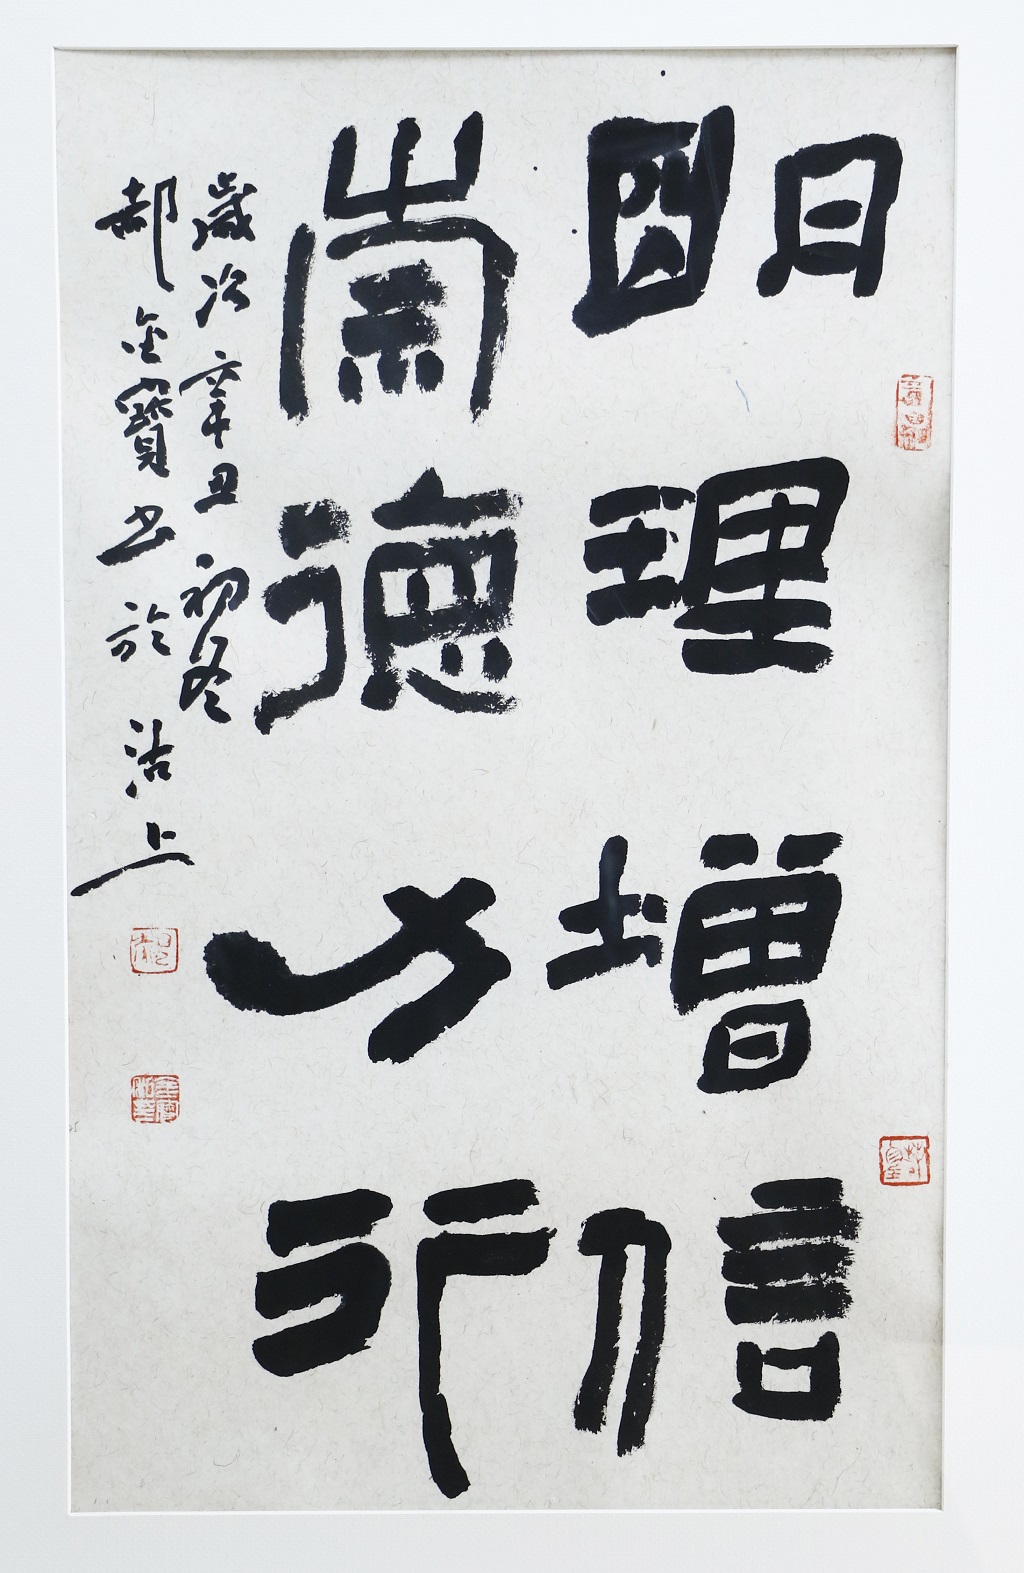 明理增信
崇德力行
歲次辛丑初冬
郝金寶書於沽上